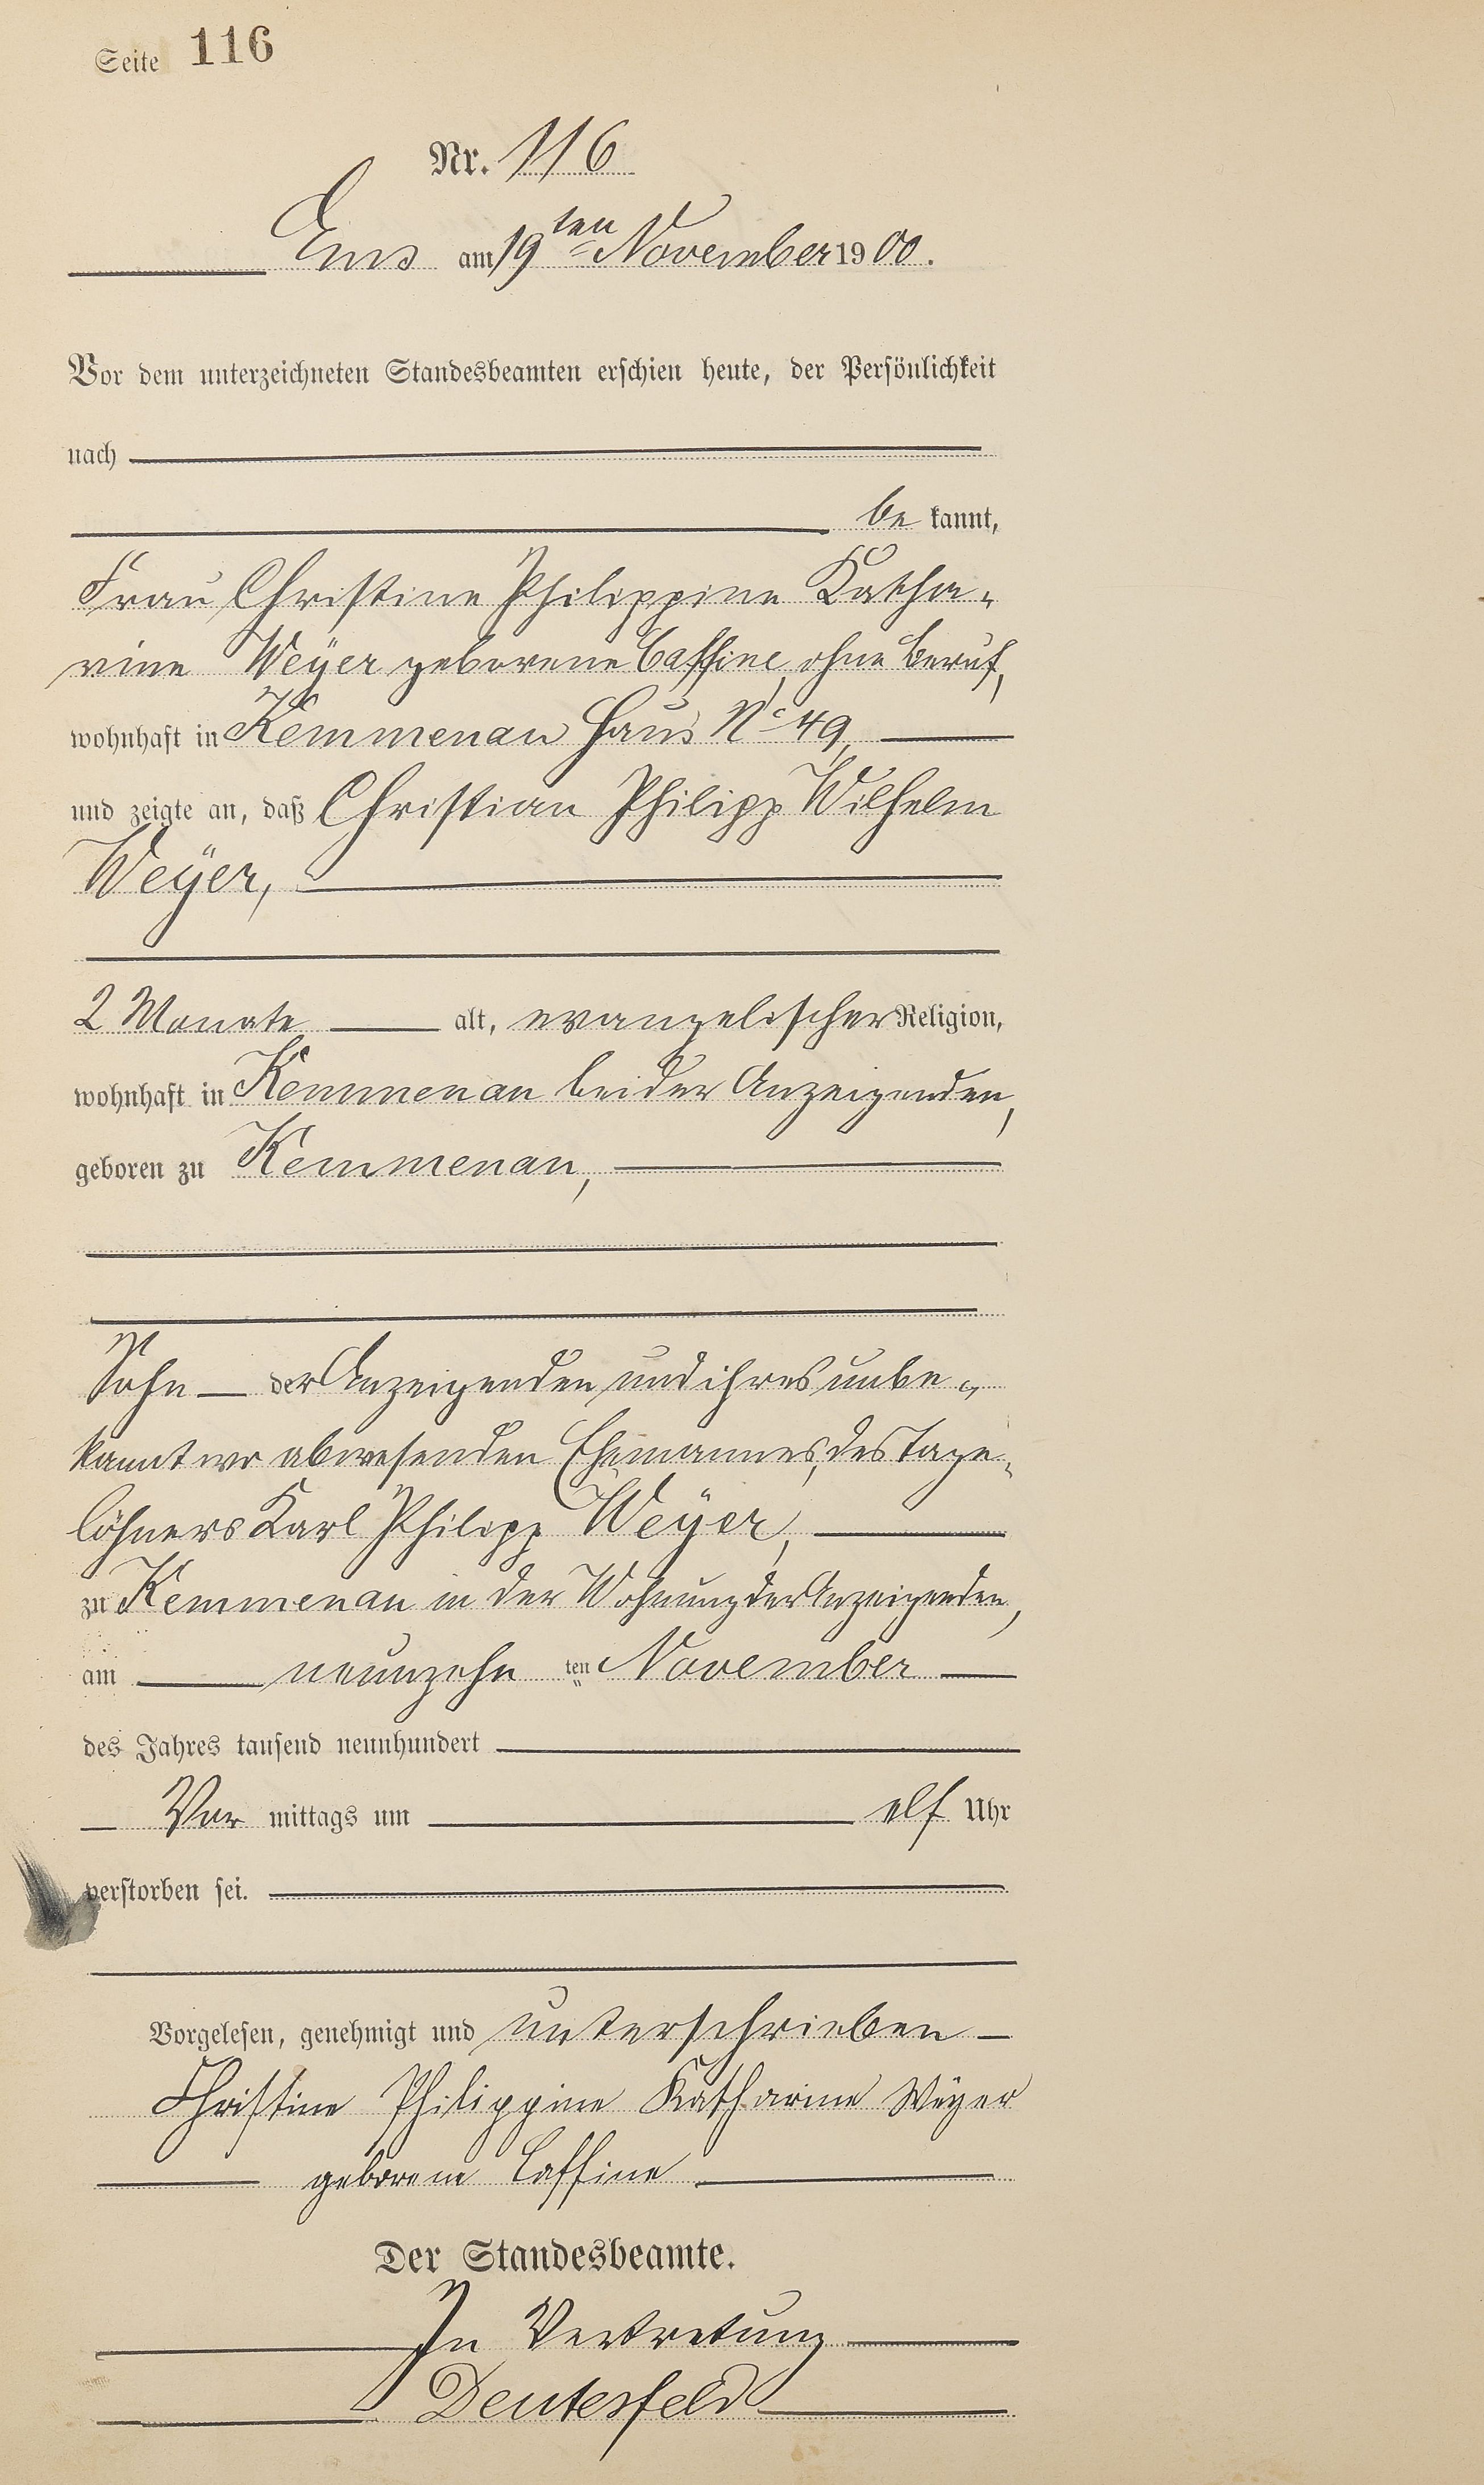 Seite 116
Nr. 116
Ems am 19ten November 1900.
Vor dem unterzeichneten Standesbeamten erschien heute, der Persönlichkeit
nach
be kannt,
Frau Christine Philippine Katha-
rine Weÿer geborene Caffine, ohne Beruf,
wohnhaft in Kemmenau Haus No 49,
und zeigte an, daß Christian Philipp Wilhelm
Weÿer,
2 Monate alt, evangelischer Religion,
wohnhaft in Kemmenau bei der Anzeigenden,
geboren zu Kemmenau,
Sohn der Anzeigenden und ihres unbe-
kannt wo abwesenden Ehemannes, des Tage-
löhners Karl Philipp Weÿer,
zu Kemmenau in der Wohnung der Anzeigenden,
am neunzehn ten November
des Jahres tausend neunhundert
Vor mittags um elf Uhr
verstorben sei.
Vorgelesen, genehmigt und unterschrieben
Christine Philippine Katharine Weÿer
geborene Caffine
Der Standesbeamte.
In Vertretung
Deutesfeld